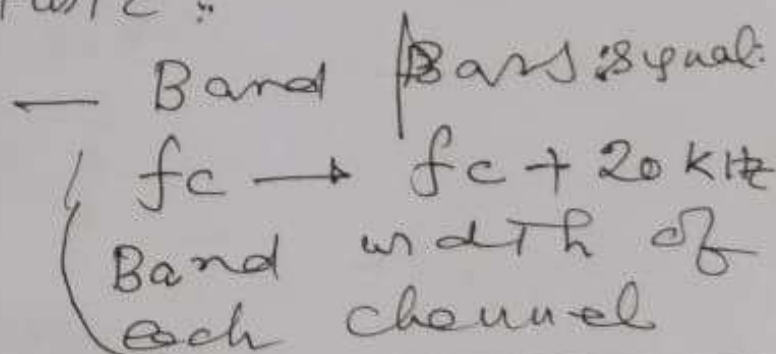 — Band Pass signal:
fc → fc + 20 KHz
Band width of
each channel